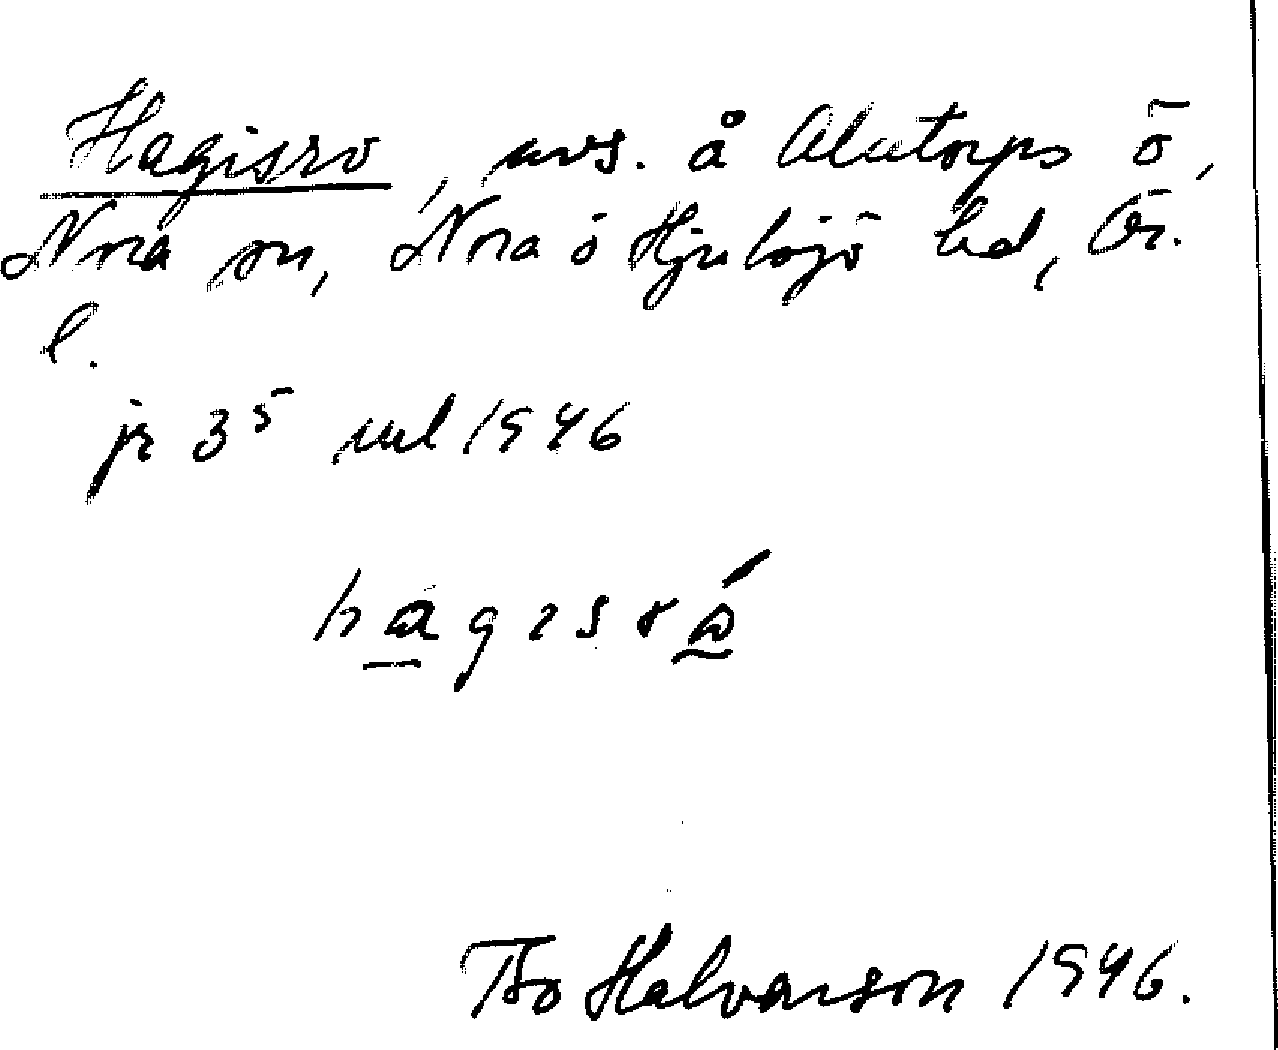 Hagisro, avs. å Alntorps ö,
Nora sn, Nora ö Hjulsjö hd, Ör.
l.
jr 3⁵ uul 1946
hagısró
Bo Halvarson 1946.